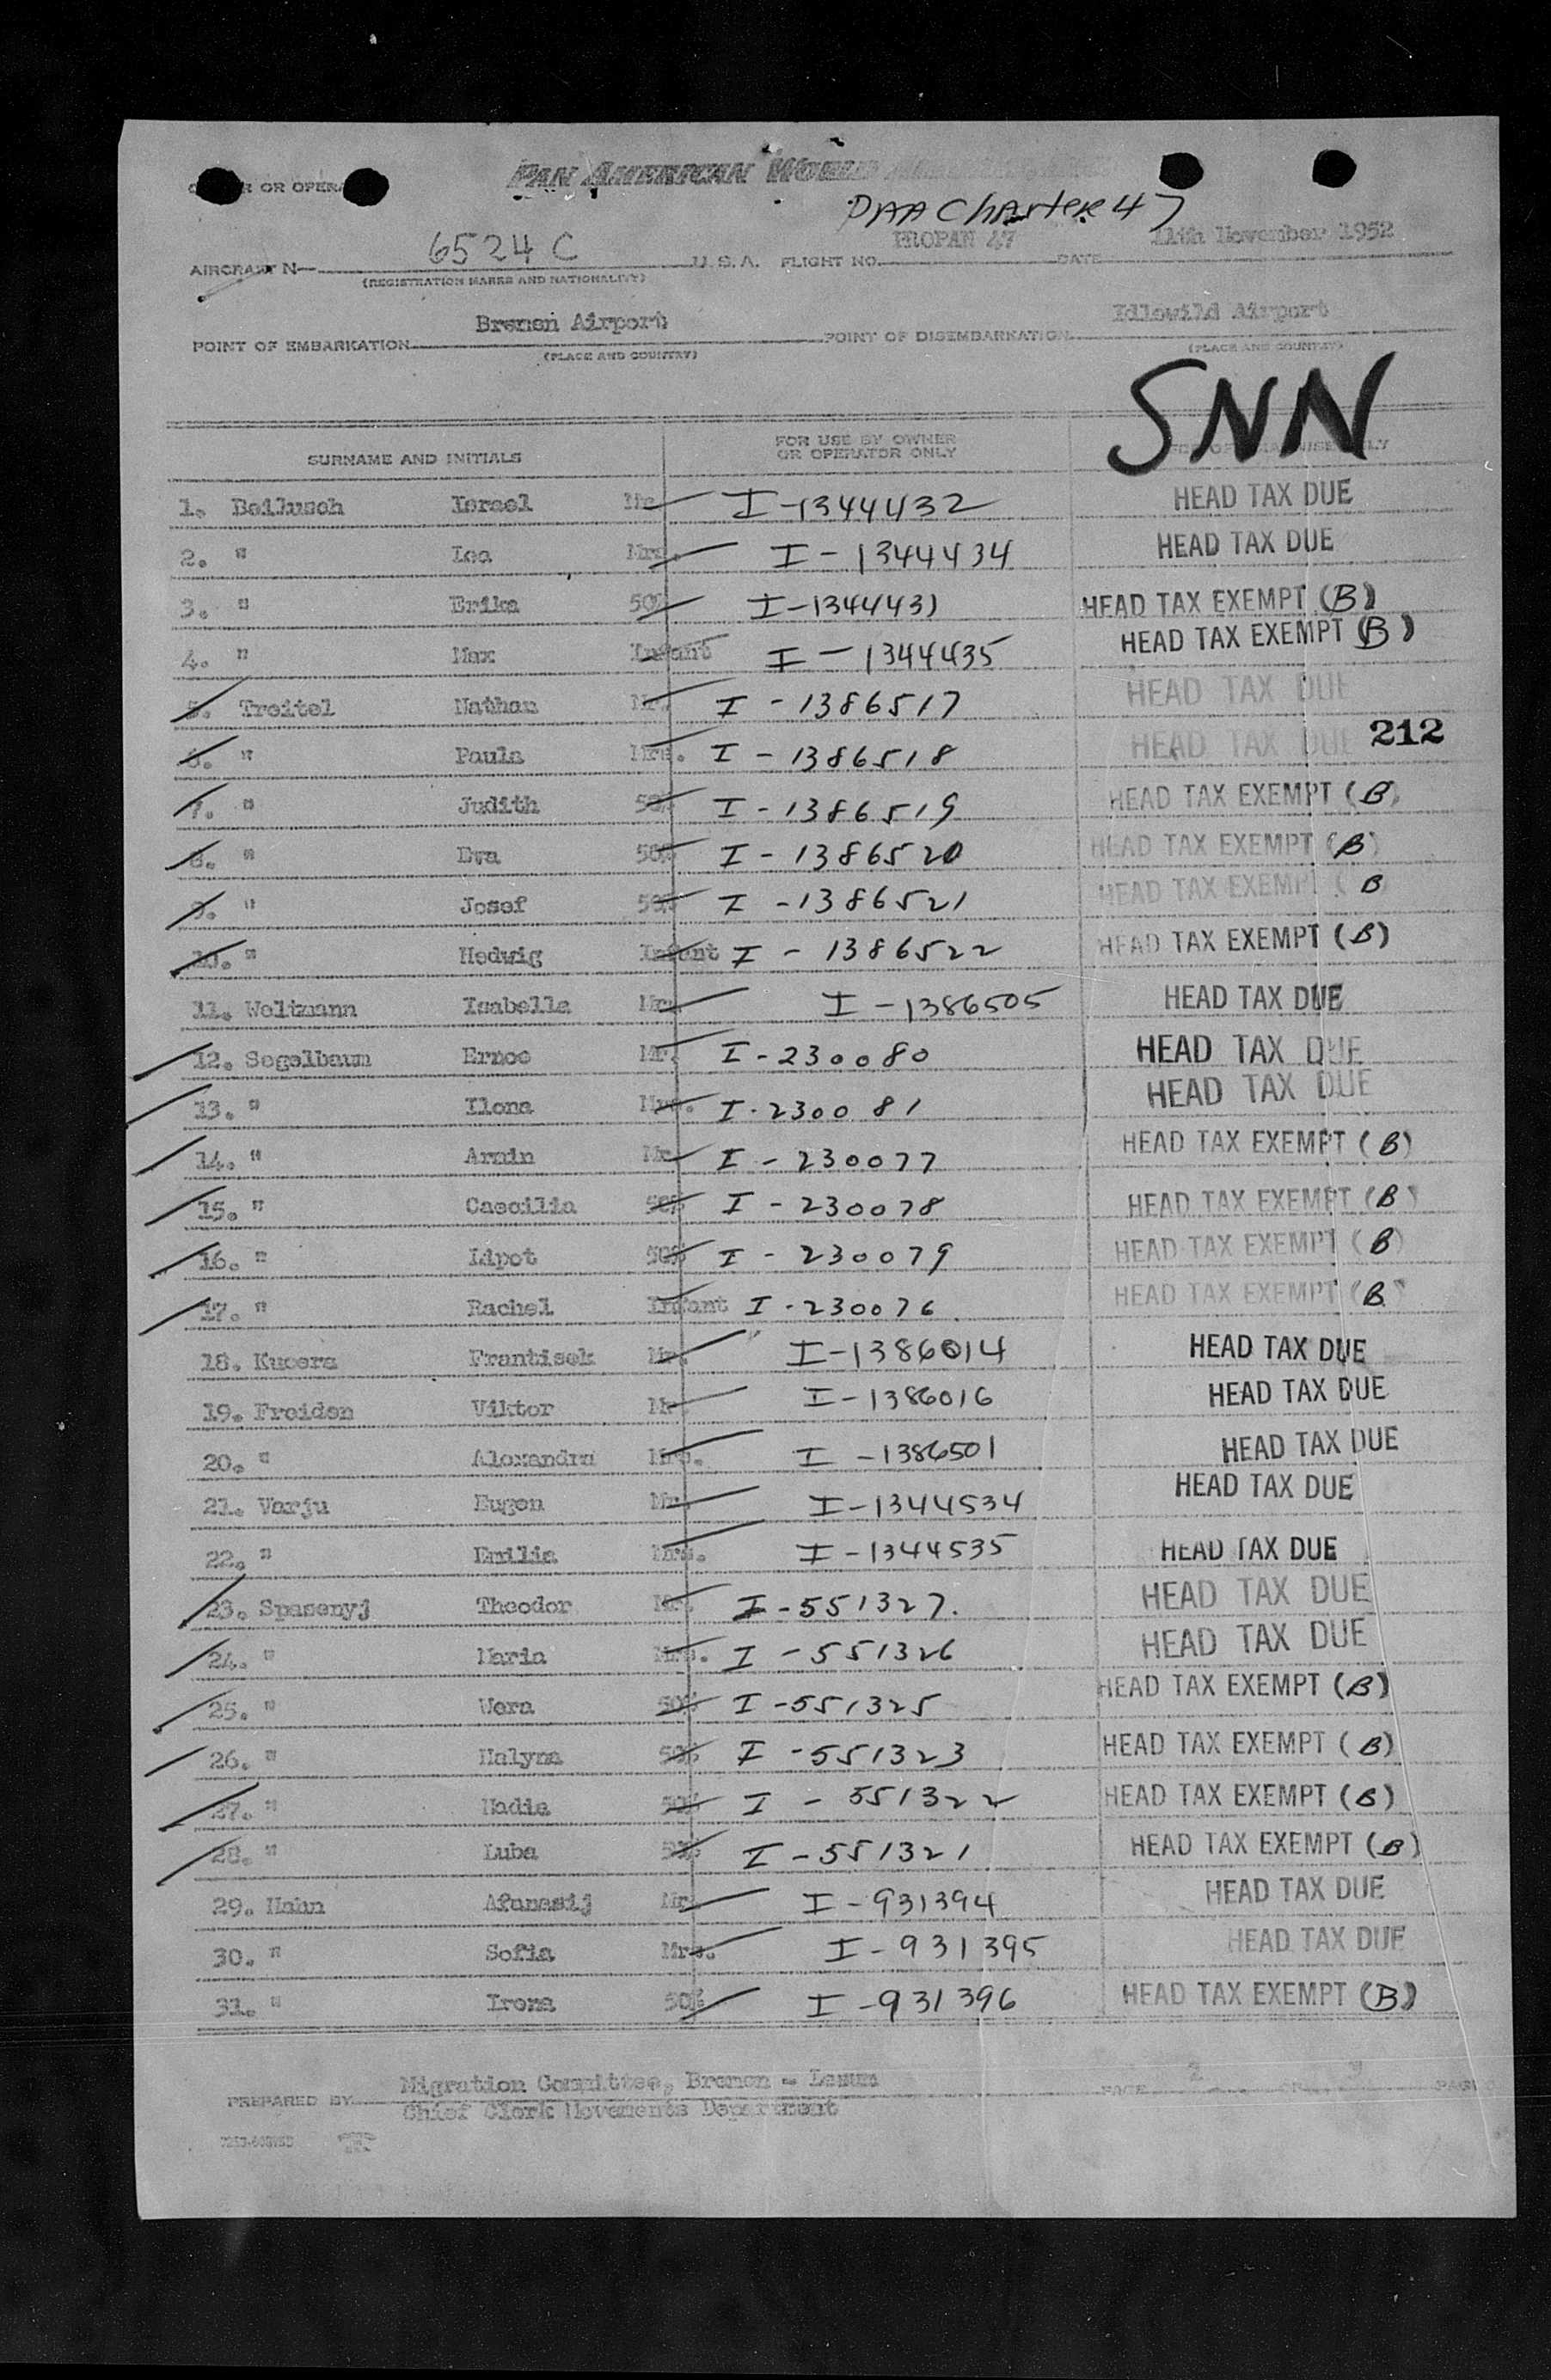 OR OPERA
PAN AMERICAN WORLD
PAA Charter 47
6524C PROPAN 47 11th November 1952
AIRCRAFT N- U. S. A. FLIGHT NO. DATE
(REGISTRATION MARKS AND NATIONALITY)
Bremen Airport Idlewild Airport
POINT OF EMBARKATION POINT OF DISEMBARKATION
(PLACE AND COUNTRY) (PLACE AND COUNTRY)
SNN
SURNAME AND INITIALS FOR USE BY OWNER OR OPERATOR ONLY
1. Beilusch Israel Mr. I-1344432 HEAD TAX DUE
2. " Lea Mrs. I-1344434 HEAD TAX DUE
3. " Erika 50% I-1344431 HEAD TAX EXEMPT (B)
4. " Max Infant I-1344435 HEAD TAX EXEMPT (B)
5. Treitel Nathan Mr. I-1386517 HEAD TAX DUE
6. " Paula Mrs. I-1386518 HEAD TAX DUE 212
7. " Judith 50% I-1386519 HEAD TAX EXEMPT (B)
8. " Eva 50% I-1386520 HEAD TAX EXEMPT (B)
9. " Josef 50% I-1386521 HEAD TAX EXEMPT (B
10. " Hedwig Infant I-1386522 HEAD TAX EXEMPT (B)
11. Weltmann Isabella I-1386505 HEAD TAX DUE
12. Segelbaum Ernoe Mr. I-230080 HEAD TAX DUE
13. " Ilona Mrs. I-230081 HEAD TAX DUE
14. " Armin Mr. I-230077 HEAD TAX EXEMPT (B)
15. " Caecilia 50% I-230078 HEAD TAX EXEMPT (B)
16. " Lipot 50% I-230079 HEAD TAX EXEMPT (B)
17. " Rachel Infant I-230076 HEAD TAX EXEMPT (B)
18. Kucera Frantisek Mr. I-1386014 HEAD TAX DUE
19. Freiden Viktor Mr. I-1386016 HEAD TAX DUE
20. " Alexandra Mrs. I-1386501 HEAD TAX DUE
21. Varju Eugen Mr. I-1344534 HEAD TAX DUE
22. " Emilia Mrs. I-1344535 HEAD TAX DUE
23. Spasenyj Theodor Mr. I-551327. HEAD TAX DUE
24. " Maria Mrs. I-551326 HEAD TAX DUE
25. " Wera 50% I-551325 HEAD TAX EXEMPT (B)
26. " Halyna 50% I-551323 HEAD TAX EXEMPT (B)
27. " Nadia 50% I-551322 HEAD TAX EXEMPT (B)
28. " Luba 50% I-551321 HEAD TAX EXEMPT (B)
29. Hahn Afanasij Mr. I-931394 HEAD TAX DUE
30. " Sofia Mrs. I-931395 HEAD TAX DUE
31. " Irena 50% I-931396 HEAD TAX EXEMPT (B)
Migration Committee, Bremen - Lesum
PREPARED BY PAGE 2 OF 3 PAGES
Chief Clerk Movements Department